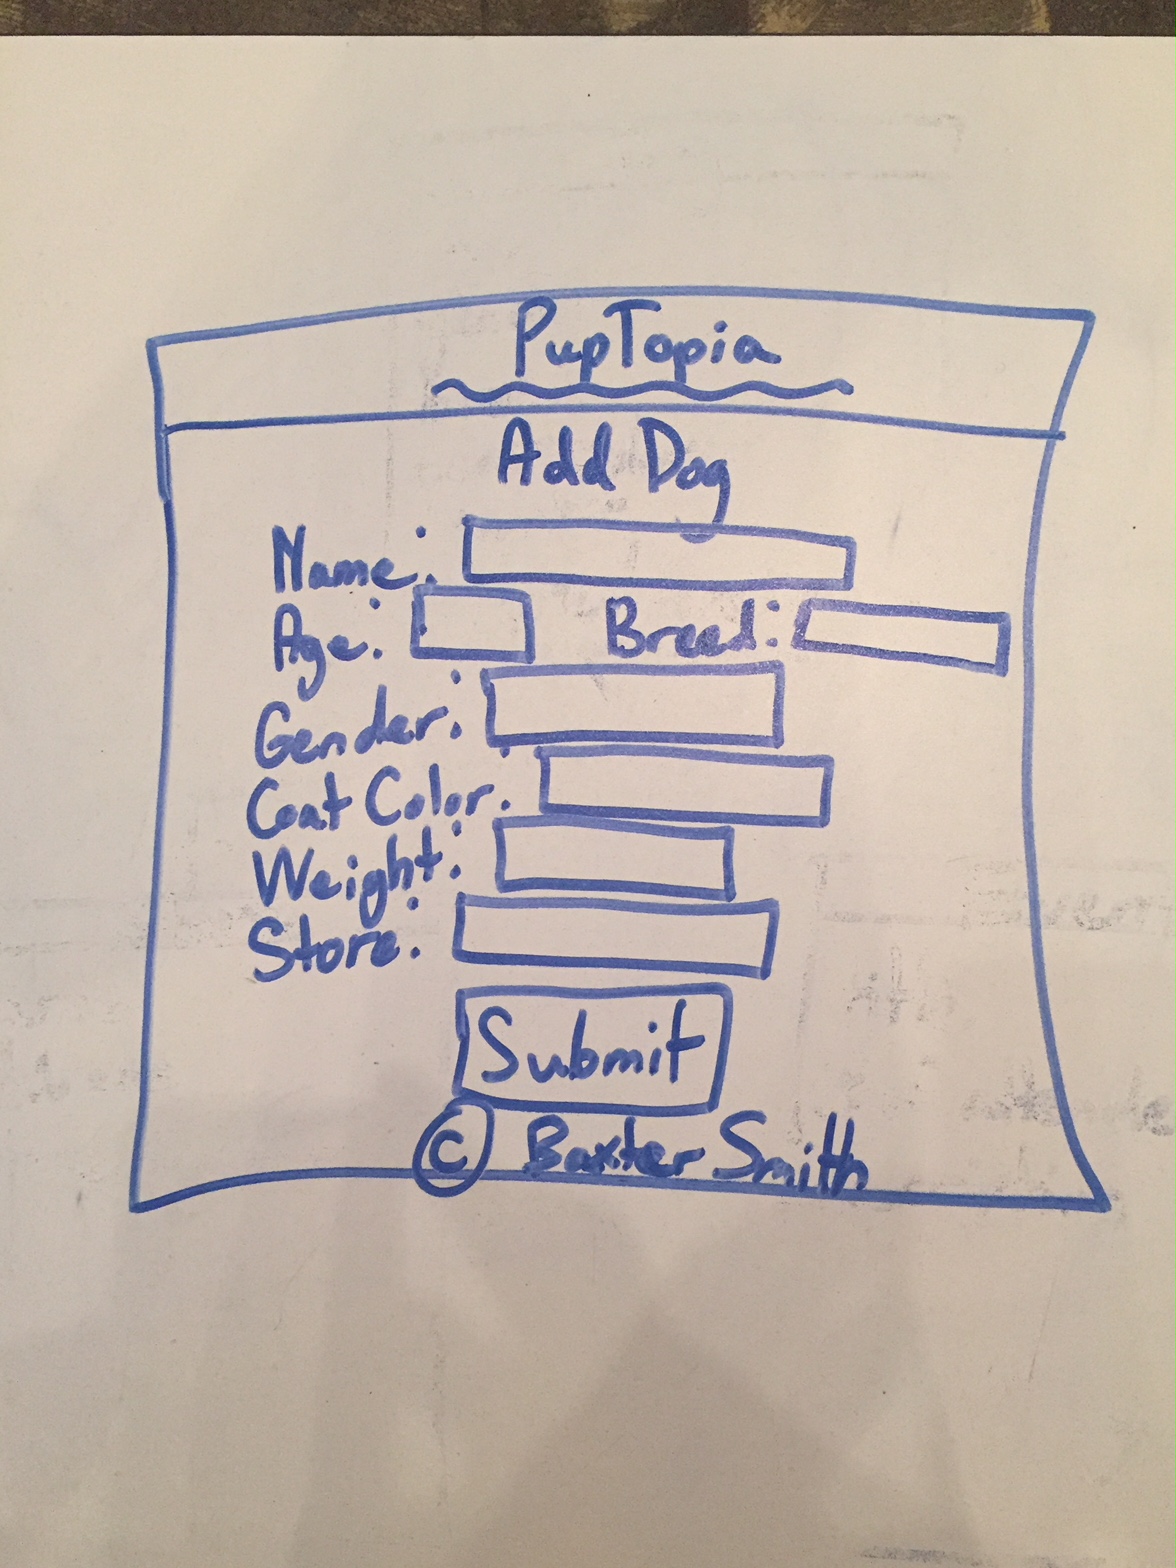 PupTopia
Add Dog
Name:
Age: Breed:
Gender:
Coat Color:
Weight:
Store:
Submit
© Baxter Smith